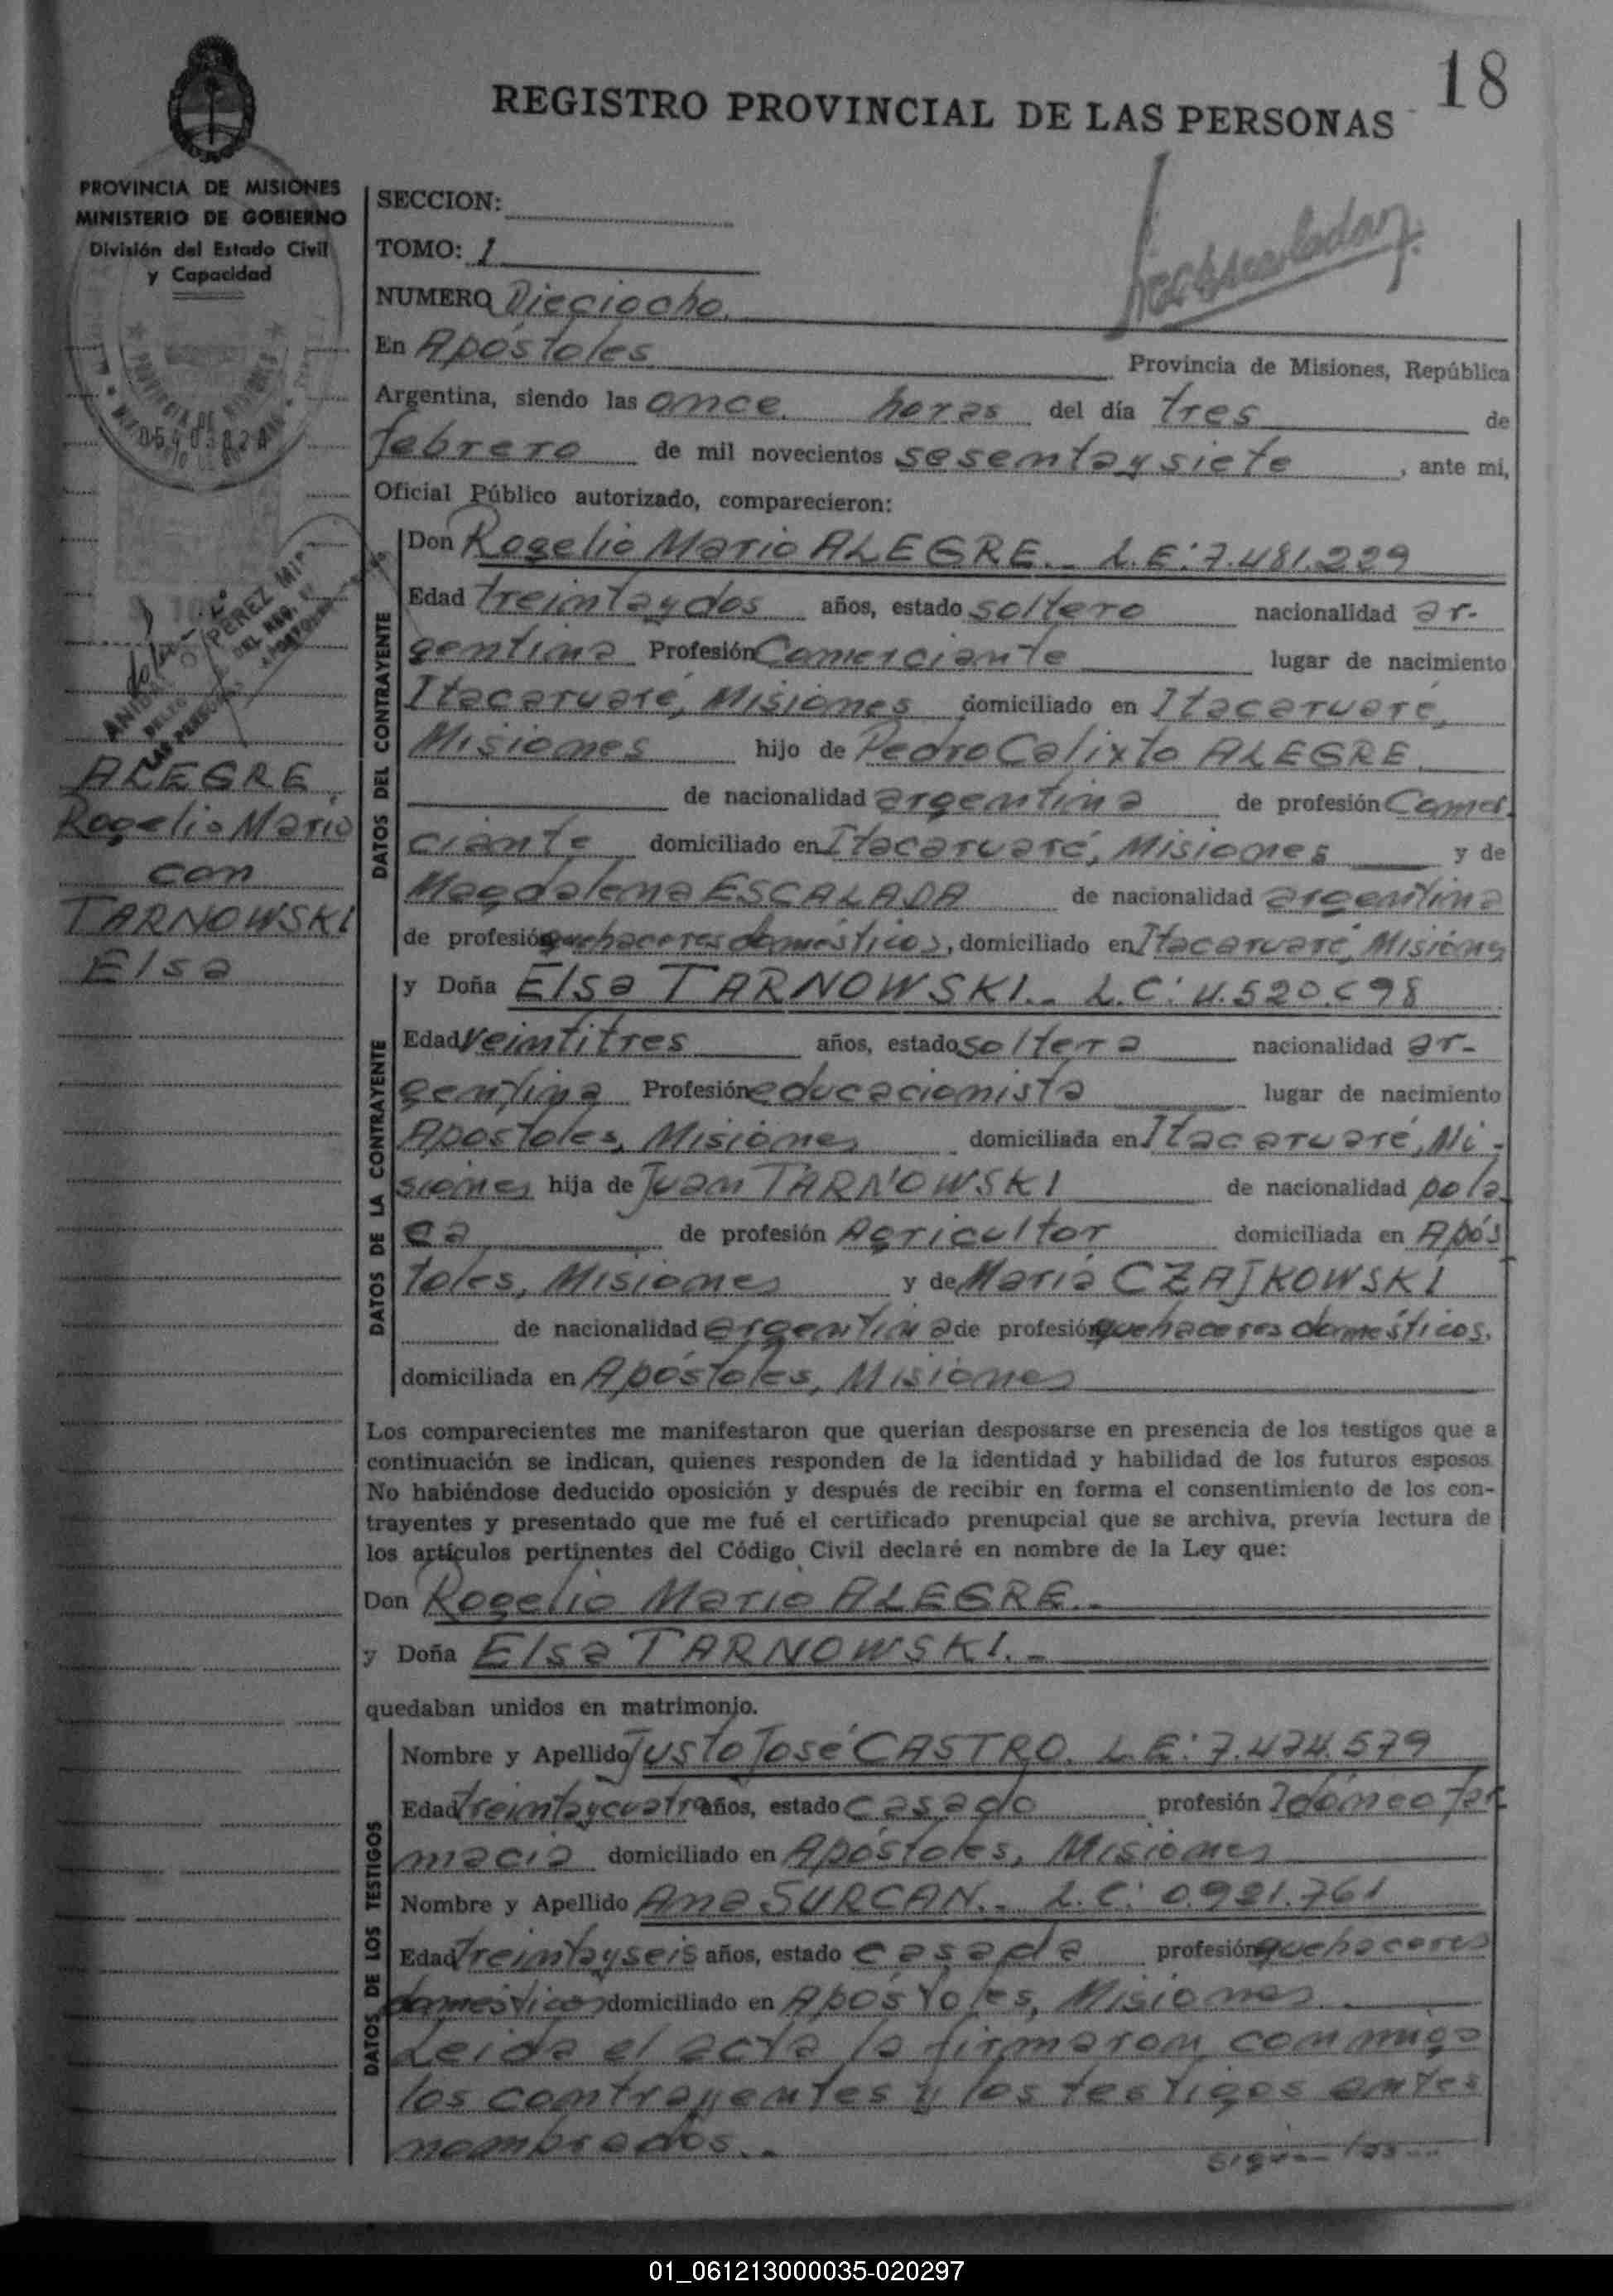 18
REGISTRO PROVINCIAL DE LAS PERSONAS
PROVINCIA DE MISIONES
MINISTERIO DE GOBIERNO
División del Estado Civil
y Capacidad
ALEGRE,
Rogelio Mario
con
TARNOWSKI
Elsa
SECCION:
TOMO: 1
NUMERO Dieciocho.
En Apóstoles Provincia de Misiones, República
Argentina, siendo las once horas del día tres de
febrero de mil novecientos sesenta y siete, ante mi,
Oficial Público autorizado, comparecieron:
DATOS DEL CONTRAYENTE
Don Rogelio Mario ALEGRE.- L.E: 7.481.229
Edad treinta y dos años, estado soltero nacionalidad ar-
gentina Profesión Comerciante lugar de nacimiento
Itacaruaré, Misiones domiciliado en Itacaruaré,
Misiones hijo de Pedro Calixto ALEGRE
de nacionalidad argentina de profesión Comer
ciante domiciliado en Itacaruaré, Misiones y de
Magdalena ESCALADA de nacionalidad argentina
de profesión quehaceres domésticos, domiciliado en Itacaruaré, Misiones
DATOS DE LA CONTRAYENTE
y Doña Elsa TARNOWSKI.- L.C: 4.520.698
Edad veintitres años, estado soltera nacionalidad ar-
gentina Profesión educacionista lugar de nacimiento
Apóstoles, Misiones domiciliada en Itacaruaré, Mi-
siones hija de Juan TARNOWSKI de nacionalidad pola
ca de profesión Agricultor domiciliada en Após
toles, Misiones y de María CZAJKOWSKI
de nacionalidad argentina de profesión quehaceres domésticos,
domiciliada en Apóstoles, Misiones
Los comparecientes me manifestaron que querian desposarse en presencia de los testigos que a
continuación se indican, quienes responden de la identidad y habilidad de los futuros esposos
No habiéndose deducido oposición y después de recibir en forma el consentimiento de los con-
trayentes y presentado que me fué el certificado prenupcial que se archiva, previa lectura de
los artículos pertinentes del Código Civil declaré en nombre de la Ley que:
Don Rogelio Mario ALEGRE.-
y Doña Elsa TARNOWSKI.-
quedaban unidos en matrimonio.
DATOS DE LOS TESTIGOS
Nombre y Apellido Justo José CASTRO. L.E: 7.474.579
Edad treinta y cuatro años, estado casado profesión Idóneo far
macia domiciliado en Apóstoles, Misiones
Nombre y Apellido Ana SURCAN.- L.C: 0.921.761
Edad treinta y seis años, estado casada profesión quehaceres
domésticos domiciliado en Apóstoles, Misiones
Leida el acta la firmaron conmigo
los contrayentes y los testigos antes
nombrados.-
01_061213000035-020297